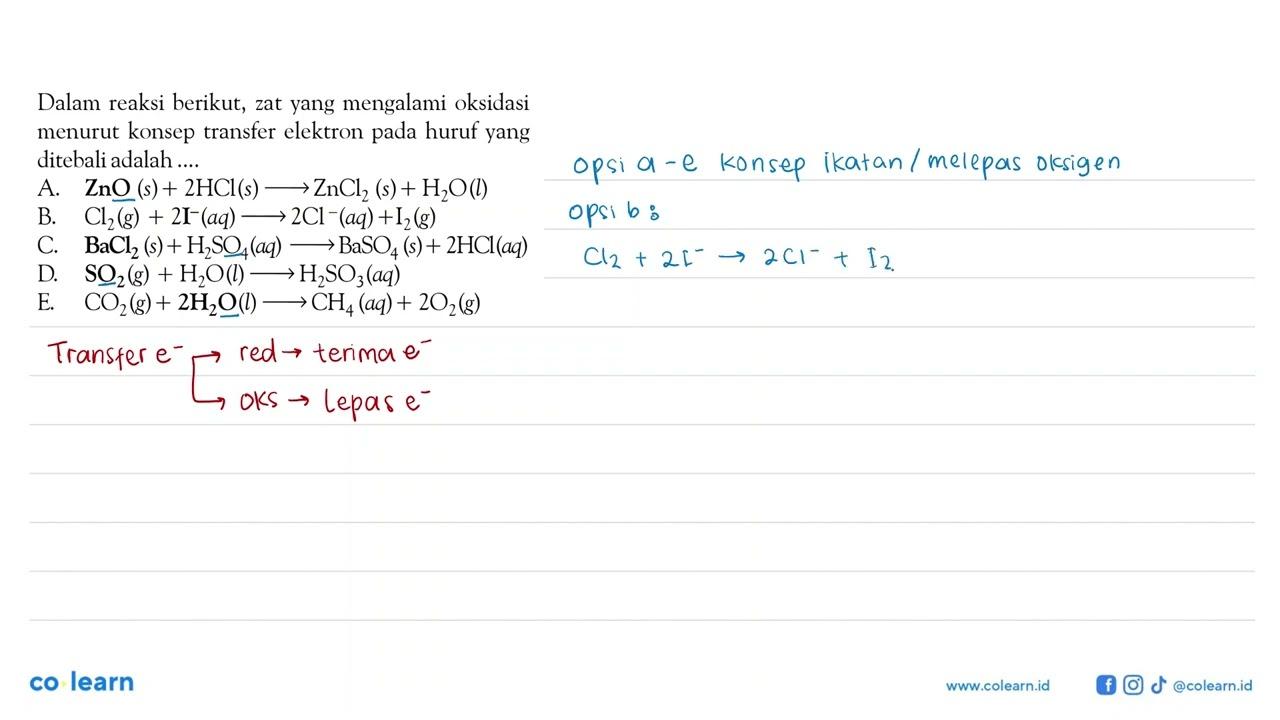 Dalam reaksi berikut, zat yang mengalami oksidasi
menurut konsep transfer elektron pada huruf yang
ditebali adalah ....
A. ZnO (s) + 2HCl(s) ⟶ ZnCl₂ (s) + H₂O(l)
B. Cl₂(g) + 2I⁻(aq) ⟶ 2Cl⁻(aq) + I₂(g)
C. BaCl₂ (s) + H₂SO₄(aq) ⟶ BaSO₄ (s) + 2HCl(aq)
D. SO₂(g) + H₂O(l) ⟶ H₂SO₃(aq)
E. CO₂(g) + 2H₂O(l) ⟶ CH₄ (aq) + 2O₂(g)
Transfer e⁻ → red → terima e⁻
→ oks → lepas e⁻
opsi a - e konsep ikatan / melepas oksigen
opsi b :
Cl₂ + 2I⁻ → 2Cl⁻ + I₂
co learn
www.colearn.id @colearn.id